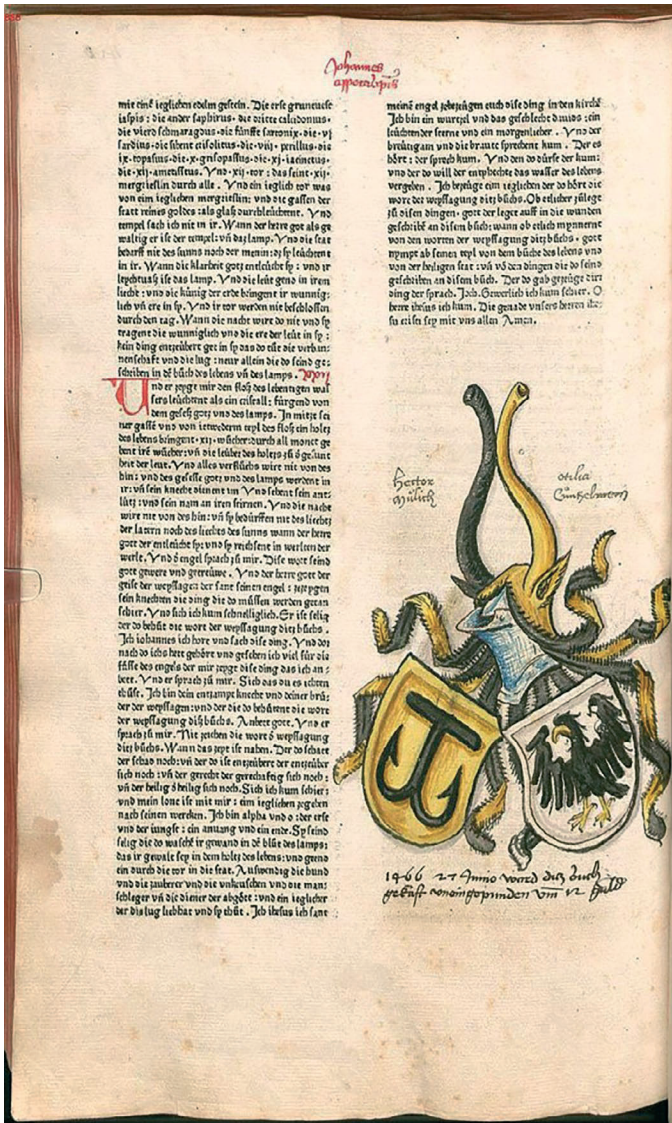 Johannes
appocalipsis
mit einē ieglichen edelm gestein. Die erst gruntuest
iaspis : die ander saphirus. die dritte calcidonius.
die vierd schmaragdus · die fünfft sardonix · die · vj
sardius · die sibent crisolitus · die · viij · perillus · die
ix · topasius · die · x · grisopassus · die · xj · iacinctus ·
die · xij · ametistus . Vnd · xij · tor : das seint · xij ·
mergrieslin durch alle . Vnd ein ieglich tor was
von eim ieglichen mergrieslin: vnd die gassen der
statt reines goldes : als glaß durchleúchtent. Vnd
tempel sach ich nit in ir. Wann der herre got als ge
waltig er ist der tempel: vn̄ daz lamp. Vnd die stat
bedarff nit des sunns noch der menin: dz sy leúchtent
in ir. Wann die klarheit gotz entleúcht sy : vnd ir
leychtuaß ist das lamp. Vnd die leút gend in irem
liecht : vnd die kúnig der erde bringent ir wunnig⸗
lich vn̄ ere in sy. Vnd ir tor werden nit beschlossen
durch den tag. Wann die nacht wirt do nit vnd sy
tragent die wunniglich vnd die ere der leút in sy :
kein ding entzeúbert get in sy das do tút die verban⸗
nenschaft vnd die lug : neur allein die do seind ge⸗
schriben in dē bůch des lebens vn̄ des lamps .
Und er zeygt mir den floß des lebentigen was
sers leúchtent als ein cristall: fúrgend von
dem geseß gotz vnd des lamps. In mitzt sei
ner gassē vnd von ietwederm teyl des floß ein holtz
des lebens bringent · xij · wůcher: durch all monet ge
bent irē wůcher: vn̄ die leúber des holtzs zů ð gesunt
heit der leút. Vnd alles verflůchs wirt nit von des
hin: vnd des gesesse gotz vnd des lamps werdent in
ir: vn̄ sein knecht dienent im Vnd sehent sein ant⸗
lútz : vnd sein nam an iren stirnen. Vnd die nacht
wirt nit von des hin: vn̄ sy bedúrffen nit des liechtz
der latern noch des liechtes des sunns wann der herre
gott der entleúcht sy: vnd sy reichsent in werlten der
werlt. Vnd ð engel sprach zů mir. Dise wort seind
gott gewere vnd getreúwe . Vnd der herre gott der
geist der weyssagen der sant seinen engel : zezeygen
sein knechten die ding die do můssen werden getan
schier. Vnd sich ich kum schnelliglich. Er ist selig
der do behút die wort der weyssagung ditz bůchs .
Ich iohannes ich hort vnd sach dise ding. Vnd dor
nach do ichs hett gehört vnd gesehen ich viel fúr die
fússe des engels der mir zeygt dise ding das ich an⸗
bett. Vnd er sprach zů mir. Sich das du es ichten
thúst. Ich bin dein entzampt knecht vnd deiner brů⸗
der der weyssagen: vnd der die do behútent die wort
der weyssagung diß bůchs. Anbett gott. Vnd er
sprach zů mir. Nit zeichen die wort ð weyssagung
ditz bůchs. Wann das zeyt ist nahen. Der do schatt
der schad noch: vn̄ der do ist entzeúbert der entzeúber
sich noch : vn̄ der gerecht der gerechaftig sich noch :
vn̄ der heilig ð heilig sich noch. Sich ich kum schier:
vnd mein lone ist mit mir : eim ieglichen zegeben
nach seinen wercken. Ich bin alpha vnd o : der erst
vnd der iungst : ein anuang vnd ein ende. Sy seind
selig die do waschē ir gewand in dē blút des lamps:
das ir gewalt sey in dem holtz des lebens: vnd gend
ein durch die tor in die stat. Auswendig die hund
vnd die zauberer vnd die vnkeuschen vnd die man⸗
schleger vn̄ die diener der abgött : vnd ein ieglicher
der dis lug liebhat vnd sy thút . Ich ihesus ich sant
meinē engel zebezeúgen euch dise ding in den kirchē
Ich bin ein wurtzel vnd das geschlecht dauids : ein
leúchten der sterne vnd ein morgenlicher . Vnd der
breútigam vnd die braut sprechent kum . Der es
hört : der sprech kum . Vnd den do dúrst der kum:
vnd der do will der entphecht das wasser des lebens
vergeben . Ich bezúge eim ieglichen der do hört die
wort der weyssagung ditz bůchs. Ob etlicher zůlegt
zů disen dingen . gott der legt auff in die wunden
geschribē an disem bůch: wann ob etlich mynnert
von den worten der weyssagung ditz bůchs . gott
nympt ab seinen teyl von dem bůche des lebens vnd
von der heiligen stat : vn̄ võ den dingen die do seind
geschriben an disem bůch. Der do gab gezúge diser
ding der sprach. Joch. Gewerlich ich kum schier. O
herre ihesus ich kum. Die genade vnsers herren ihe⸗
su cristi sey mit vns allen Amen.
Hector
Mülich
otilia
1466 27 Junio ward ditz buch
gekaft vneingepunden vm 12 guld